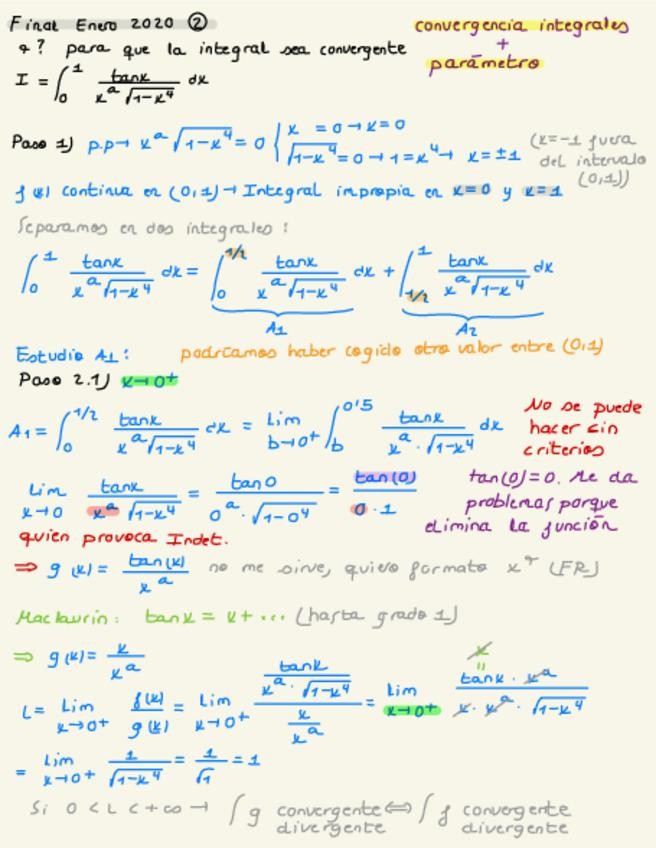 Final Enero 2020 ②
convergencia integrales
+
parámetro
a? para que la integral sea convergente
I = ∫₀¹ tanx / (xᵃ √(1-x⁴)) dx
Paso 1) p.p→ xᵃ √(1-x⁴) = 0 { x = 0 → x=0
√(1-x⁴) = 0 → 1=x⁴ → x=±1
(x=-1 fuera
del intervalo
(0,1))
f(x) continua en (0,1) → Integral impropia en x=0 y x=1
Separamos en dos integrales:
∫₀¹ tanx / (xᵃ √(1-x⁴)) dx = ∫₀^(1/2) tanx / (xᵃ √(1-x⁴)) dx + ∫_(1/2)^1 tanx / (xᵃ √(1-x⁴)) dx
A1 A2
Estudio A1: podríamos haber cogido otro valor entre (0,1)
Paso 2.1) x→0⁺
A1 = ∫₀^(1/2) tanx / (xᵃ √(1-x⁴)) dx = Lim b→0⁺ ∫_b^0'5 tanx / (xᵃ · √(1-x⁴)) dx
No se puede
hacer sin
criterios
Lim x→0 tanx / (xᵃ √(1-x⁴)) = tan0 / (0ᵃ · √(1-0⁴)) = tan(0) / (0 · 1)
tan(0)=0. Me da
problemas porque
elimina la función
quien provoca Indet.
⇒ g(x) = tan(x) / xᵃ no me sirve, quiero formato xʳ (FR)
Maclaurin: tanx = x+... (hasta grado 1)
⇒ g(x) = x / xᵃ
L = Lim x→0⁺ f(x) / g(x) = Lim x→0⁺ (tanx / (xᵃ · √(1-x⁴))) / (x / xᵃ) = Lim x→0⁺ (tanx · xᵃ) / (x · xᵃ · √(1-x⁴))
x
=
= Lim x→0⁺ 1 / √(1-x⁴) = 1 / √1 = 1
Si 0 < L < +∞ → ∫g convergente ⇔ ∫f convergente
divergente divergente